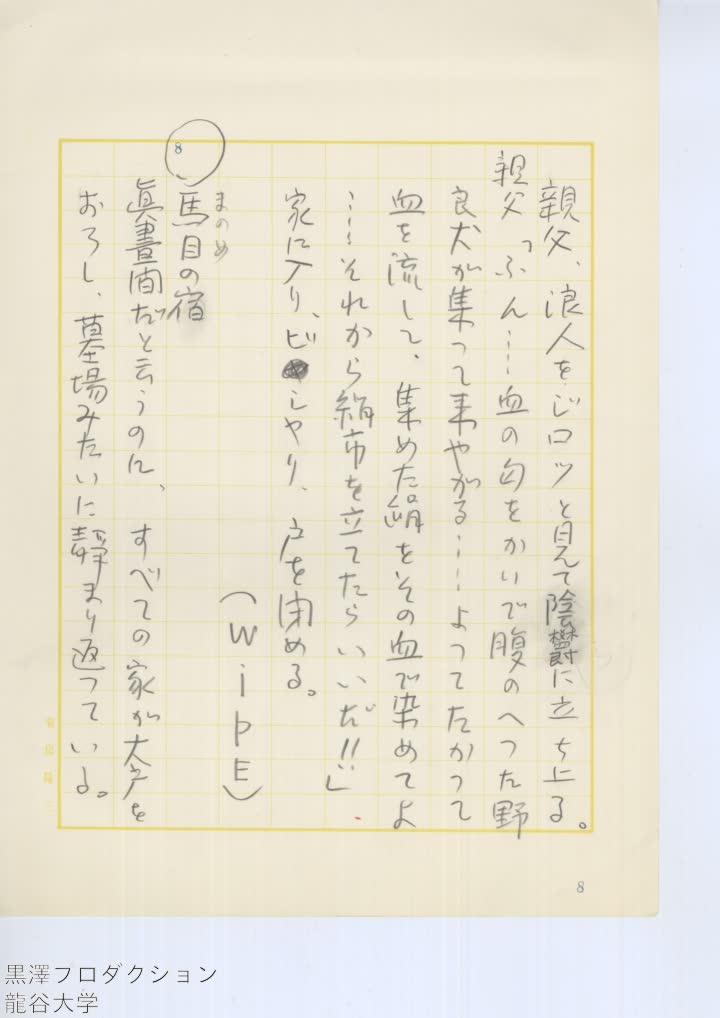 親父、浪人をジロツと見て陰欝に立ち上る。
親父「ふん……血の匂をかいで腹のへつた野
良犬が集つて来やがる……よつてたかつて
血を流して、集めた絹をその血で染めてよ
……それから絹市を立てたらいいだ!!」
家に入り、ビシヤり、戸を閉める。
(WipE)
8
まのめ
馬目の宿
眞晝間だと云うのに、すべての家が大戸を
おろし、墓場みたいに静まり返つている。
8
黒澤プロダクション
龍谷大学